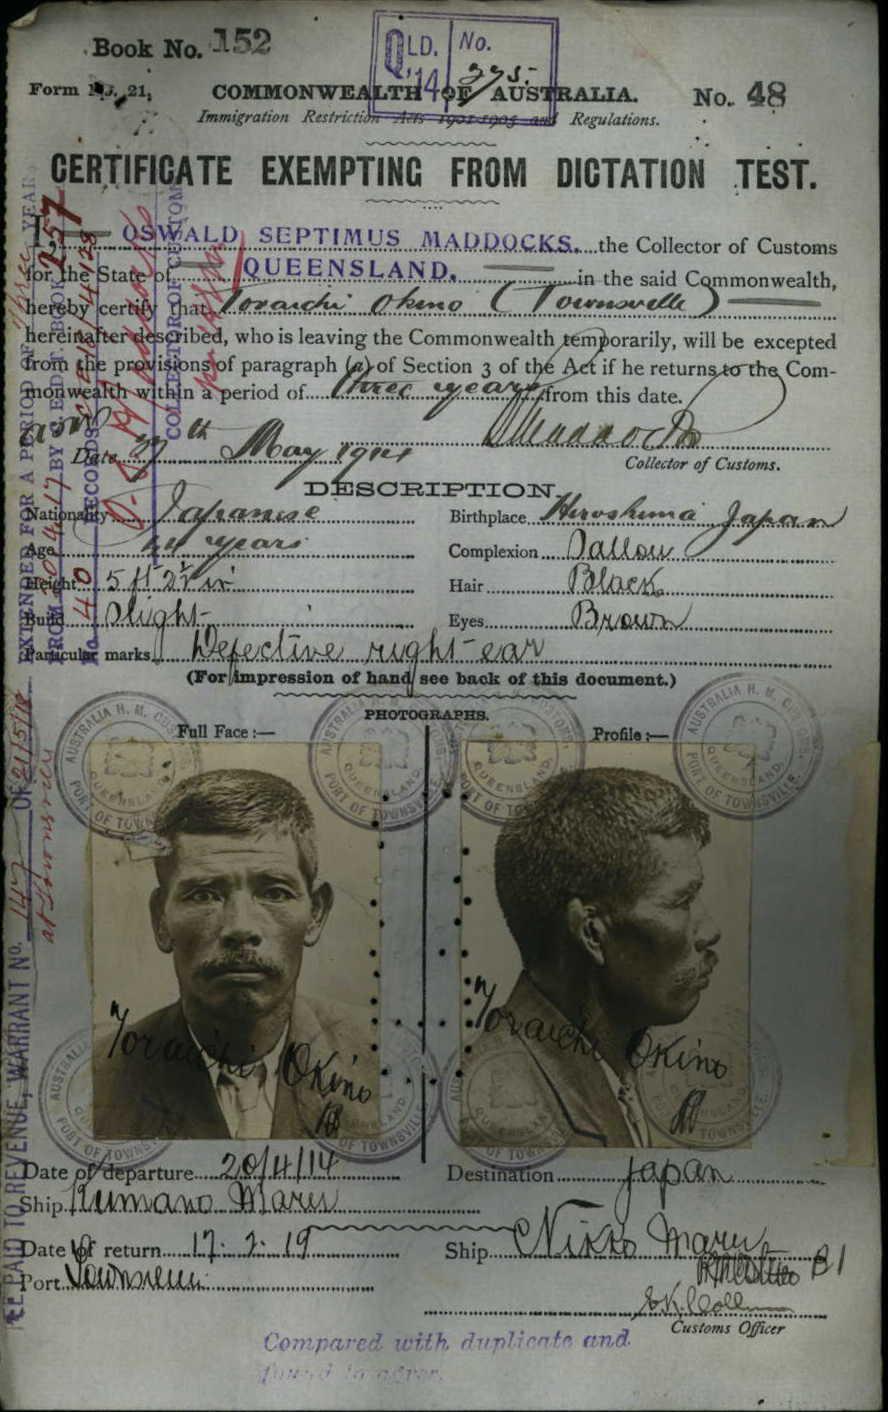 Book No. 152
QLD. '14 No. 375.
Form No. 21.
COMMONWEALTH OF AUSTRALIA. No. 48
Immigration Restriction Acts 1901-1905 and Regulations.
CERTIFICATE EXEMPTING FROM DICTATION TEST.
I, OSWALD SEPTIMUS MADDOCKS, the Collector of Customs
for the State of QUEENSLAND, in the said Commonwealth,
hereby certify that Toraichi Okino (Townsville)
hereinafter described, who is leaving the Commonwealth temporarily, will be excepted
from the provisions of paragraph (a) of Section 3 of the Act if he returns to the Com-
monwealth within a period of three years from this date.
Maddocks
Date May 1914
Collector of Customs.
DESCRIPTION.
Nationality Japanese
Birthplace Hiroshima Japan
Age 44 years
Complexion Sallow
Height 5 ft 2½ in
Hair Black
Build Slight
Eyes Brown
Particular marks Defective right ear
(For impression of hand see back of this document.)
PHOTOGRAPHS.
Full Face :—
Profile :—
AUSTRALIA H. M. CUSTOMS. QUEENSLAND. PORT OF TOWNSVILLE.
Toraichi Okino
Toraichi Okino
Date of departure 20/4/14
Destination Japan
Ship Kumano Maru
Date of return 17. 2. 19
Ship Nikko Maru
Port Townsville
B1
Customs Officer
Compared with duplicate and
found to agree.
EXTENDED FOR A PERIOD OF three YEARS
FROM BY C. EDT. BOOK 257
No. 40 RECORDS
COLLECTOR OF CUSTOMS
FEE PAID TO REVENUE, WARRANT No. 147 OF 21/5/18
at Townsville